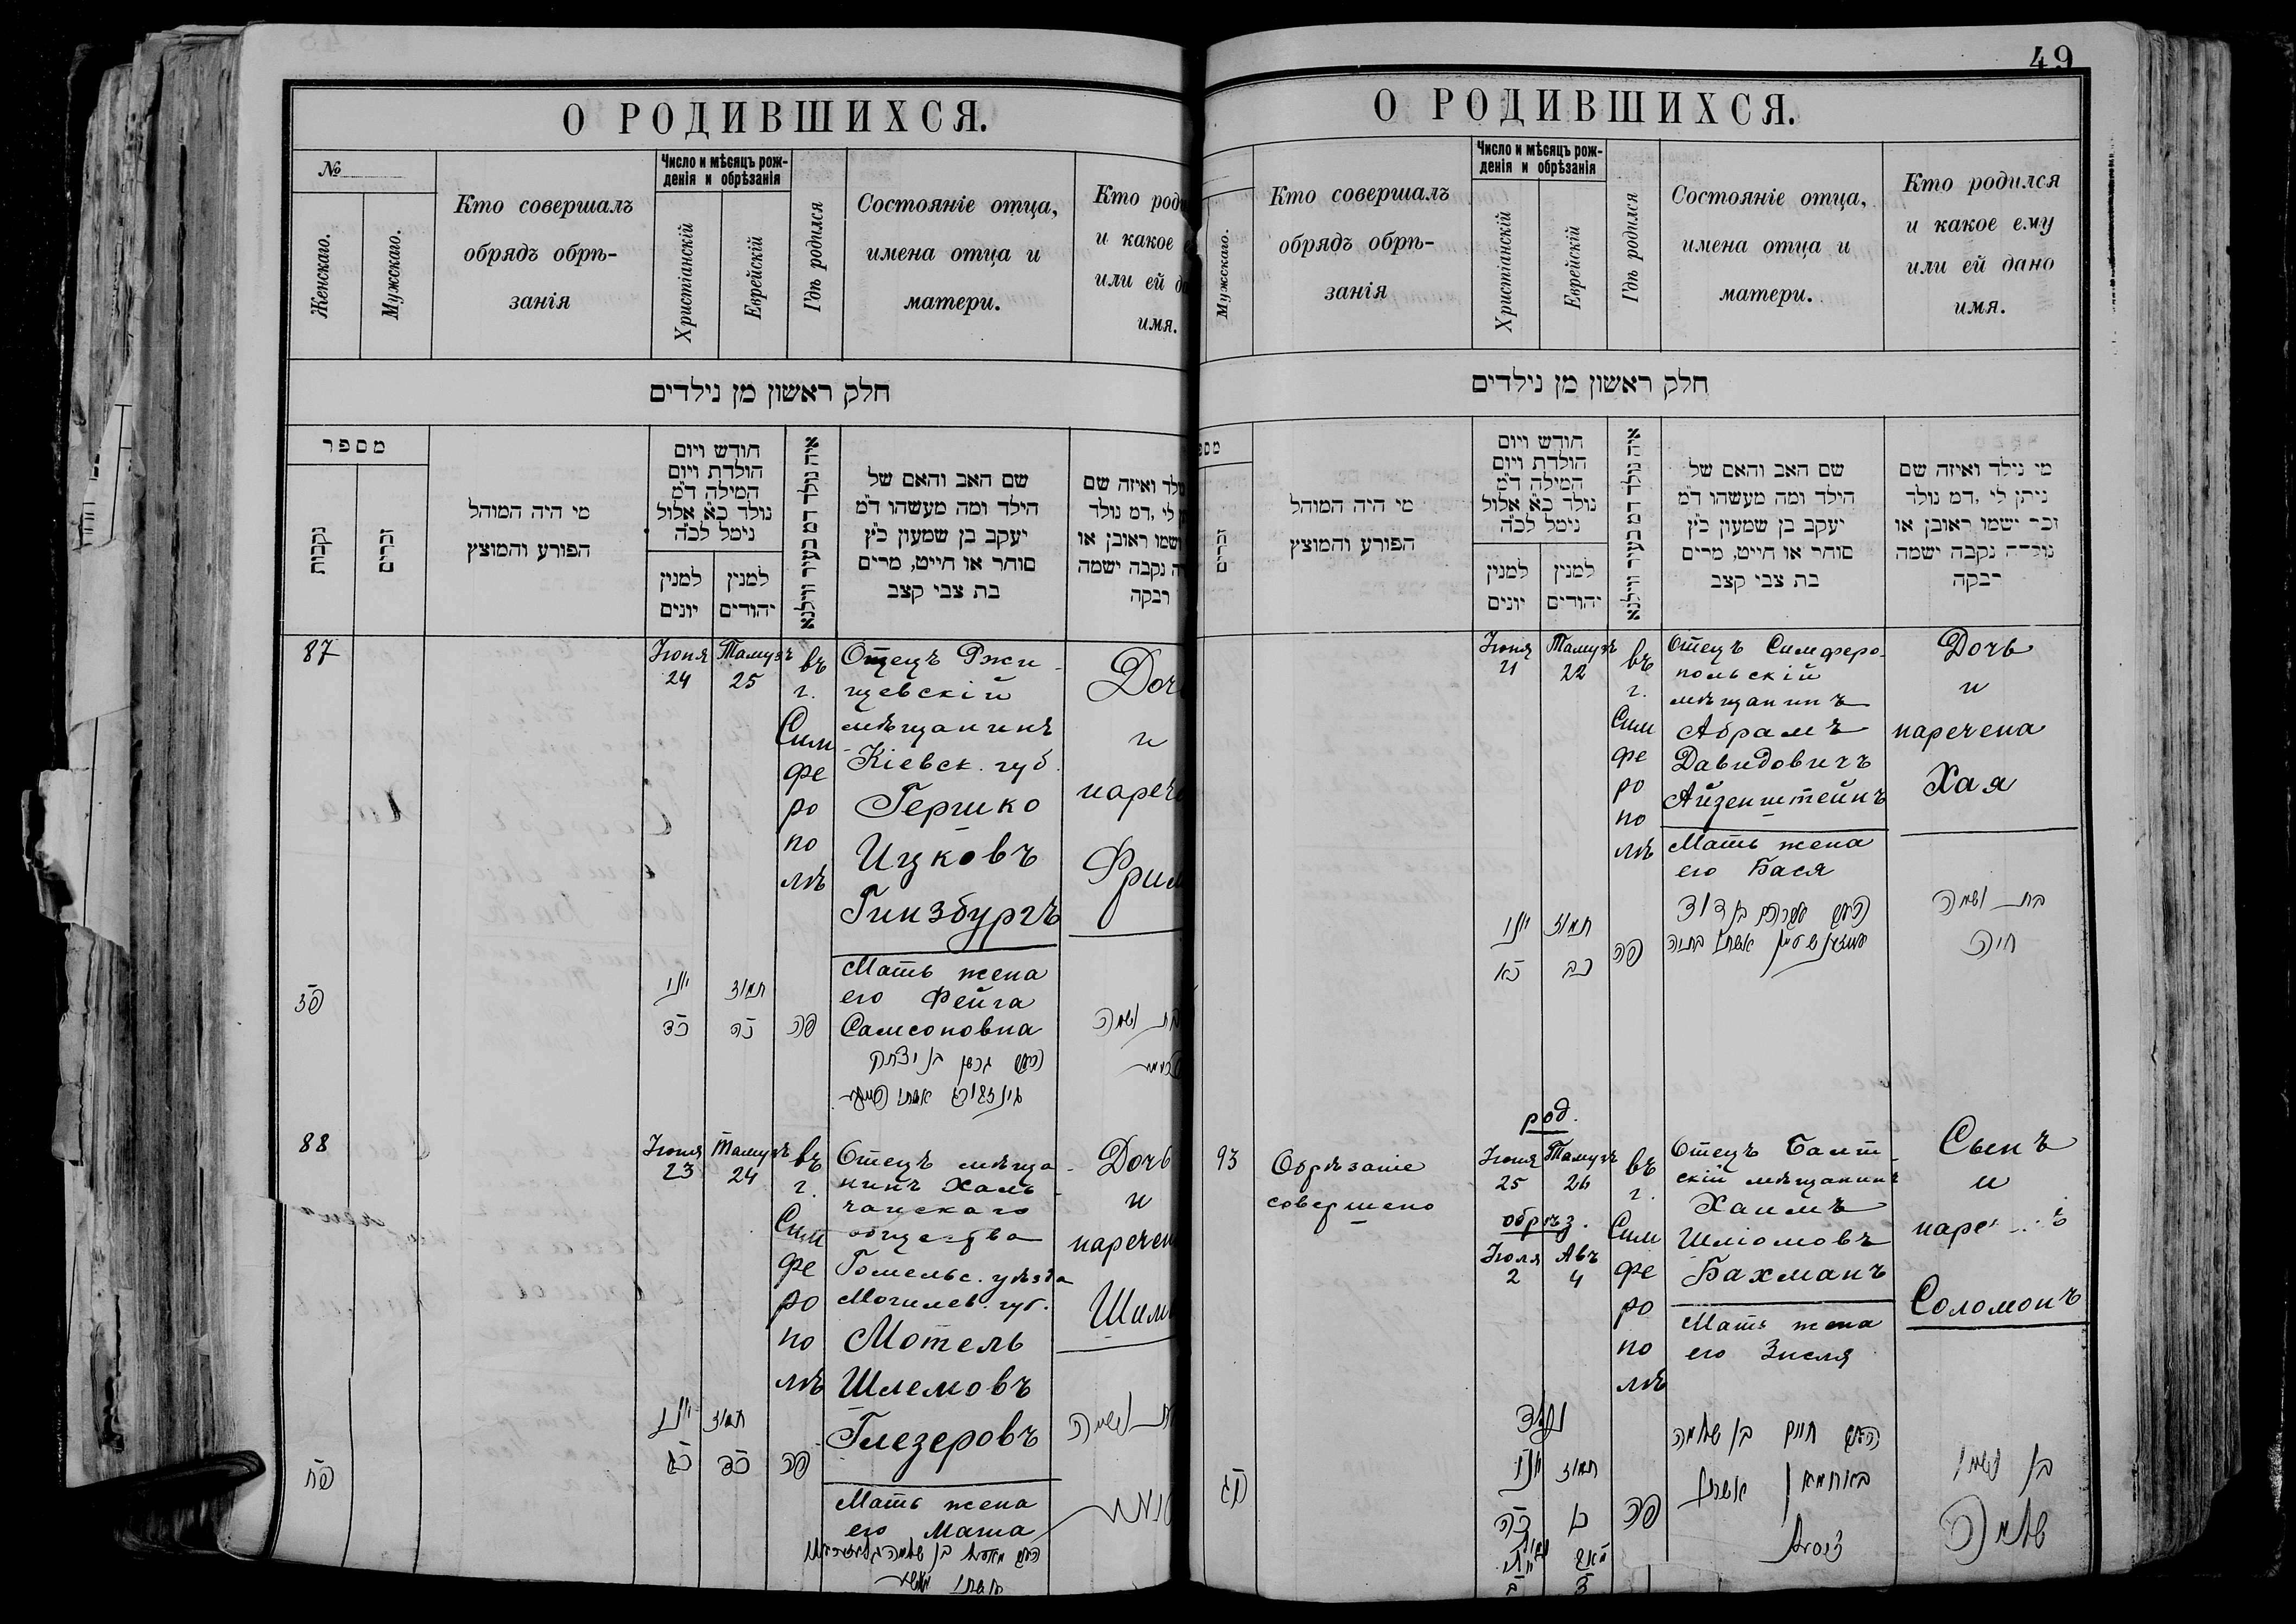 О РОДИВШИХСЯ.
№
Женскаго.
Мужскаго.
Кто совершалъ
обрядъ обрѣ-
занія
Число и мѣсяцъ рож-
денія и обрѣзанія
Христіанскій
Еврейскій
Гдѣ родился
Состояніе отца,
имена отца и
матери.
Кто роди
и какое е
или ей да
имя.
חלק ראשון מן נילדים
מספר
נקבות
זכרים
מי היה המוהל
הפורע והמוצץ
חודש ויום
הולדת ויום
המילה ד״מ
נולד כ״א אלול
נימל לכ״ה
למנין
יונים
למנין
יהודים
איה נולד דמ בעיר ווילנא
שם האב והאם של
הילד ומה מעשהו ד״מ
יעקב בן שמעון כ״ץ
סוחר או חייט, מרים
בת צבי קצב
ולד ואיזה שם
לי ,דמ נולד
ישמו ראובן או
ה נקבה ישמה
רבקה
87
Іюня
24
Тамузъ
25
въ
г.
Сим
фе
ро
по
лѣ
Отецъ Ржи-
щевскій
мѣщанинъ
Кіевск. губ.
Гершко
Ицковъ
Гинзбургъ
Мать жена
его Фейга
Самсоновна
Дочь
и
нарече
Фрим
פז
יוני
כד
תמוז
כה
פה
האב גרשון בן יצחק
גינזבורג אשתו פייגא
בת ושמה
88
Іюня
23
Тамузъ
24
въ
г.
Сим
фе
ро
по
лѣ
Отецъ мѣща-
нинъ Халь-
чанскаго
общества
Гомельс. уѣзда
Могилев. губ.
Мотель
Шлемовъ
Глезеровъ
Мать жена
его Маша
Дочь
и
наречен
Шим
פח
יוני
כג
תמוז
כד
פה
בת ושמה
49
О РОДИВШИХСЯ.
Мужскаго.
Кто совершалъ
обрядъ обрѣ-
занія
Число и мѣсяцъ рож-
денія и обрѣзанія
Христіанскій
Еврейскій
Гдѣ родился
Состояніе отца,
имена отца и
матери.
Кто родился
и какое ему
или ей дано
имя.
חלק ראשון מן נילדים
מספ
זכרים
מי היה המוהל
הפורע והמוצץ
חודש ויום
הולדת ויום
המילה ד״מ
נולד כ״א אלול
נימל לכ״ה
למנין
יונים
למנין
יהודים
איה נולד דמ בעיר ווילנא
שם האב והאם של
הילד ומה מעשהו ד״מ
יעקב בן שמעון כ״ץ
סוחר או חייט, מרים
בת צבי קצב
מי נילד ואיזה שם
ניתן לי ,דמ נולד
זכר ישמו ראובן או
נולדה נקבה ישמה
רבקה
Іюня
21
Тамузъ
22
въ
г.
Сим
фе
ро
по
лѣ
Отецъ Симферо-
польскій
мѣщанинъ
Абрамъ
Давидовичъ
Айзенштейнъ
Мать жена
его Бася
Дочь
и
наречена
Хая
יוני
כא
תמוז
כב
פה
האב אברהם בן דוד
אייזענשטיין אשתו בתיה
בת ושמה
חיה
93
Обрѣзаніе
совершено
род.
Іюня
25
Тамузъ
26
обрѣз.
Іюля
2
Авъ
4
въ
г.
Сим
фе
ро
по
лѣ
Отецъ Балт-
скій мѣщанинъ
Хаимъ
Шліомовъ
Бахманъ
Мать жена
его Зисля
Сынъ
и
наре
Соломонъ
צג
נולד
יוני
כה
תמוז
כו
פה
האב חיים בן שלמה
באחמאן אשתו
זיסלא
בן ושמו
שלמה